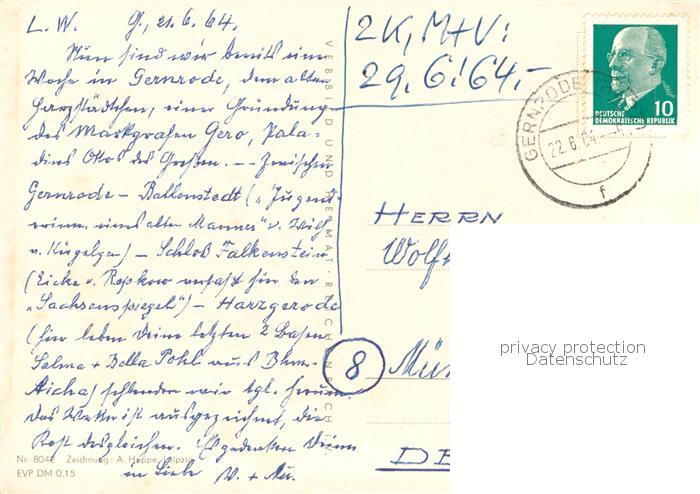 L. W. G, 21.6.64.
Nun sind wir bereits eine
Woche in Gernrode, dem alten
Harzstädtchen, einer Gründung
des Markgrafen Gero, Pala-
dins Ottos des Großen. -- Zwischen
Gernrode - Ballenstedt („Jugend-
erinn. eines alten Mannes" v. Wilh
v. Kügelgen) - Schloß Falkenstein
(Eicke v. Repkow verfaßt hier den
„Sachsenspiegel") - Harzgerode
(hier leben Deine letzten 2 Basen
Selma + Bella Pohl aus Bhm.
Aicha) schlendern wir tgl. herum
das Wetter ist ausgezeichnet, die
Kost desgleichen. Es gedenken Deiner
in Liebe W. + Mu.
Nr. 8042 Zeichnung: A. Hoppe, Leipzig
EVP DM 0,15
VEB BILD UND HEIMAT · REICHENBACH
2K, M+V:
29.6.'64.-
GERNRODE
22.6.64
f
10
DEUTSCHE
DEMOKRATISCHE REPUBLIK
HERRN
Wolf
8 Mün
DE
privacy protection
Datenschutz